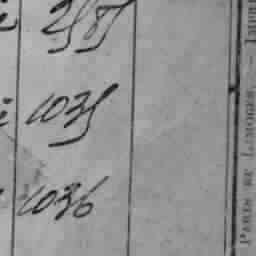 2585
1035
1036
PARIS ET LIMOGES. — IMPR